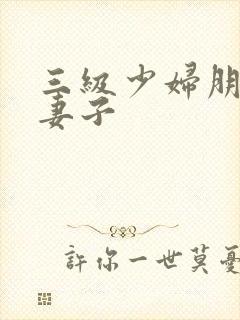 三級少婦朋
妻子
許你一世莫憂